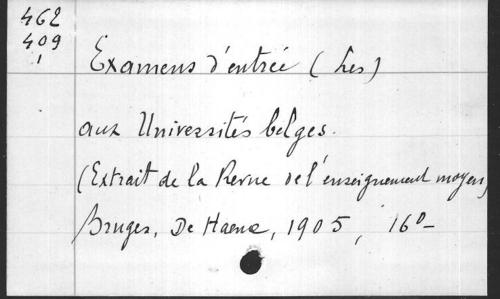 462
409
1
Examens d'entrée (Les)
aux Universités belges.
(Extrait de la Revue de l'enseignement moyen)
Bruges, De Haene, 1905, 16°-